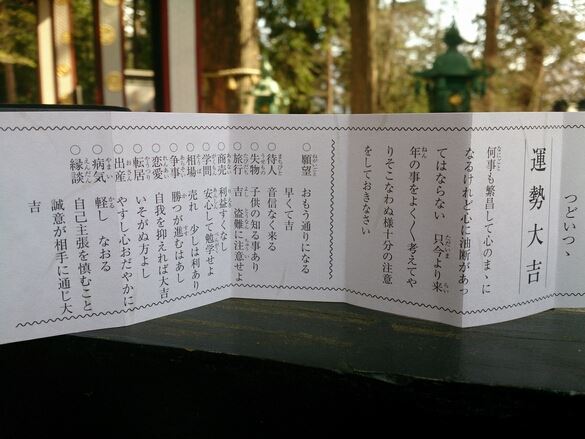 つどいつゝ
運勢大吉
何事も繁昌して心のまゝに
なるけれど心に油断があっ
てはならない　只今より来
年の事をよく〱考えてや
りそこなわぬ様十分の注意
をしておきなさい
○願望　おもう通りになる
早くて吉
○待人　音信なく来る
○失物　子供の知る事あり
○旅行　吉　盗難に注意せよ
○商売　利益すくなし
○学問　安心して勉学せよ
○相場　売れ　少しは利あり
○争事　勝つが進むはあし
○恋愛　自我を抑えれば大吉
○転居　いそがぬがよし
○出産　やすし心おだやかに
○病気　軽し　なおる
○縁談　自己主張を慎むこと
誠意が相手に通じ大
吉